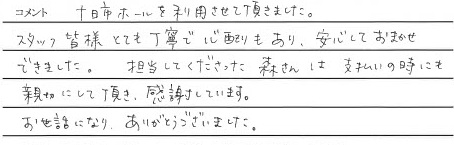 コメント 十日市ホールを利用させて頂きました。
スタッフ皆様とても丁寧で心配りもあり、安心しておまかせ
できました。 担当してくださった 森さんは 支払いの時にも
親切にして頂き、感謝しています。
お世話になり、ありがとうございました。